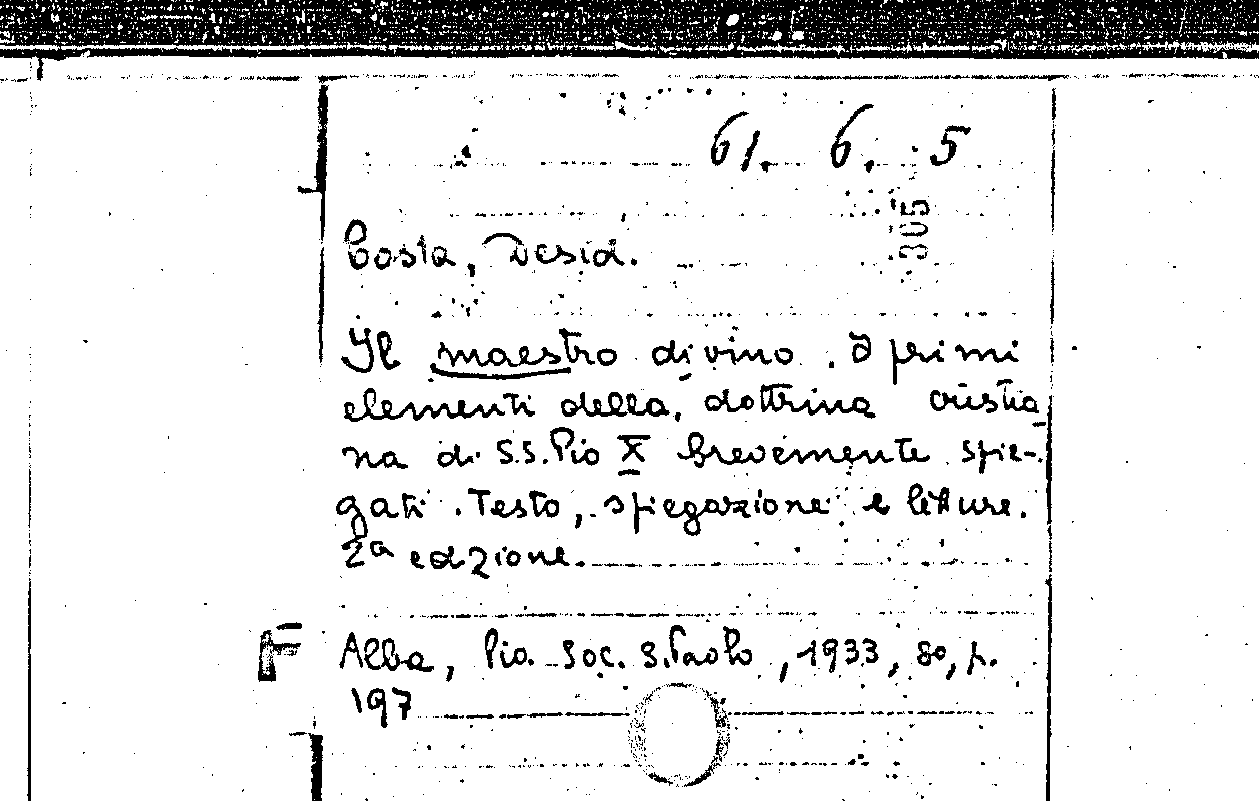 61. 6. 5
305
Costa, Desid.
Il maestro divino. I primi
elementi della, dottrina cristia
na di S.S. Pio X brevemente spie-
gati. Testo, spiegazione e letture.
2a edzione.
F Alba, Pia Soc. S. Paolo, 1933, 8o, p.
197